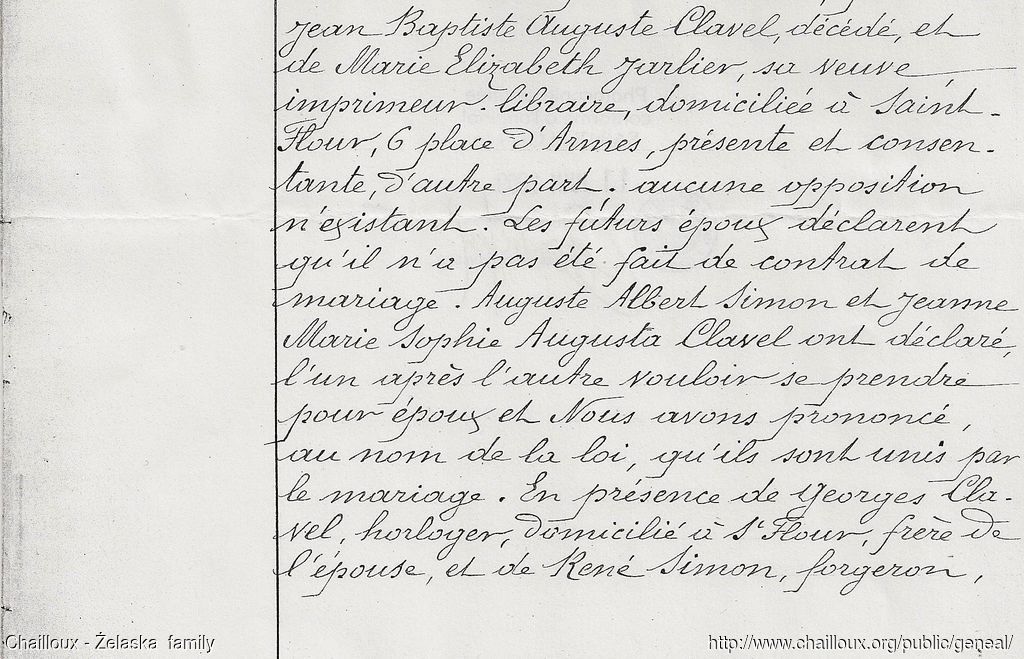 Jean Baptiste Auguste Clavel, décédé, et
de Marie Elizabeth Jarlier, sa veuve
imprimeur-libraire, domiciliée à Saint-
Flour, 6 place d'Armes, présente et consen-
tante, d'autre part. aucune opposition
n'existant. Les futurs époux déclarent
qu'il n'a pas été fait de contrat de
mariage. Auguste Albert Simon et Jeanne
Marie Sophie Augusta Clavel ont déclaré,
l'un après l'autre vouloir se prendre
pour époux et Nous avons prononcé,
au nom de la loi, qu'ils sont unis par
le mariage. En présence de Georges Cla-
vel, horloger, domicilié à St Flour, frère de
l'épouse, et de René Simon, forgeron,
Chailloux - Żelaska family
http://www.chailloux.org/public/geneal/